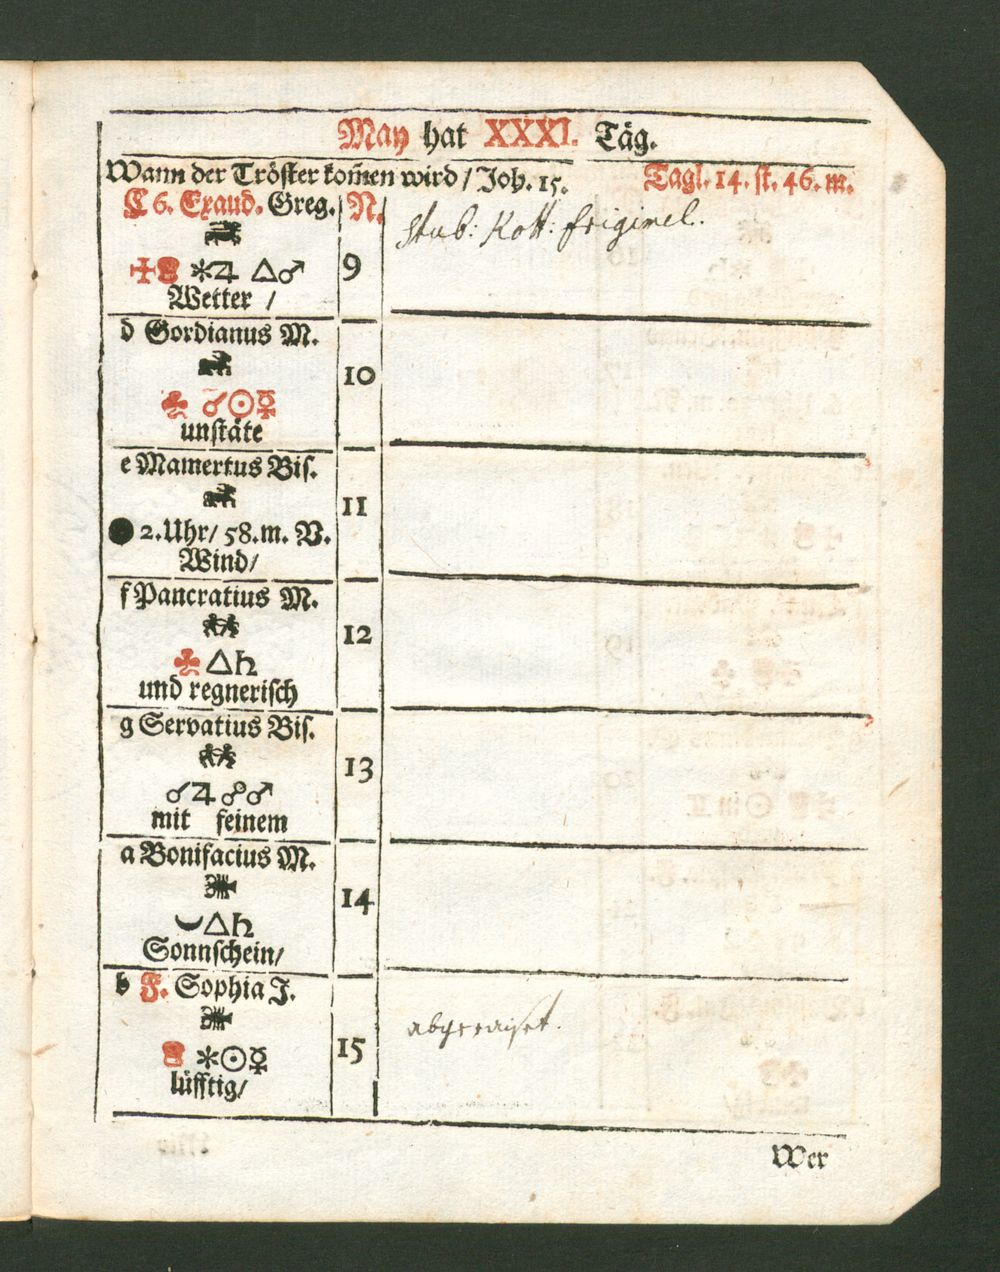 May hat XXXI. Täg.
Wann der Tröster kom̃en wird / Joh. 15. Tagl. 14. st. 46. m.
C 6. Exaud. Greg. N.
✳♃ △♂ 9
Wetter /
d Gordianus M.
10
☌☉☿
unstäte
e Mamertus Bis.
11
● 2. Uhr / 58. m. V.
Wind /
f Pancratius M.
12
△♄
und regnerisch
g Servatius Bis.
13
☌♃ ☍♂
mit feinem
a Bonifacius M.
14
△♄
Sonnschein /
b F. Sophia J.
abgeraiset.
15
✳☉☿
lüfftig /
Wer